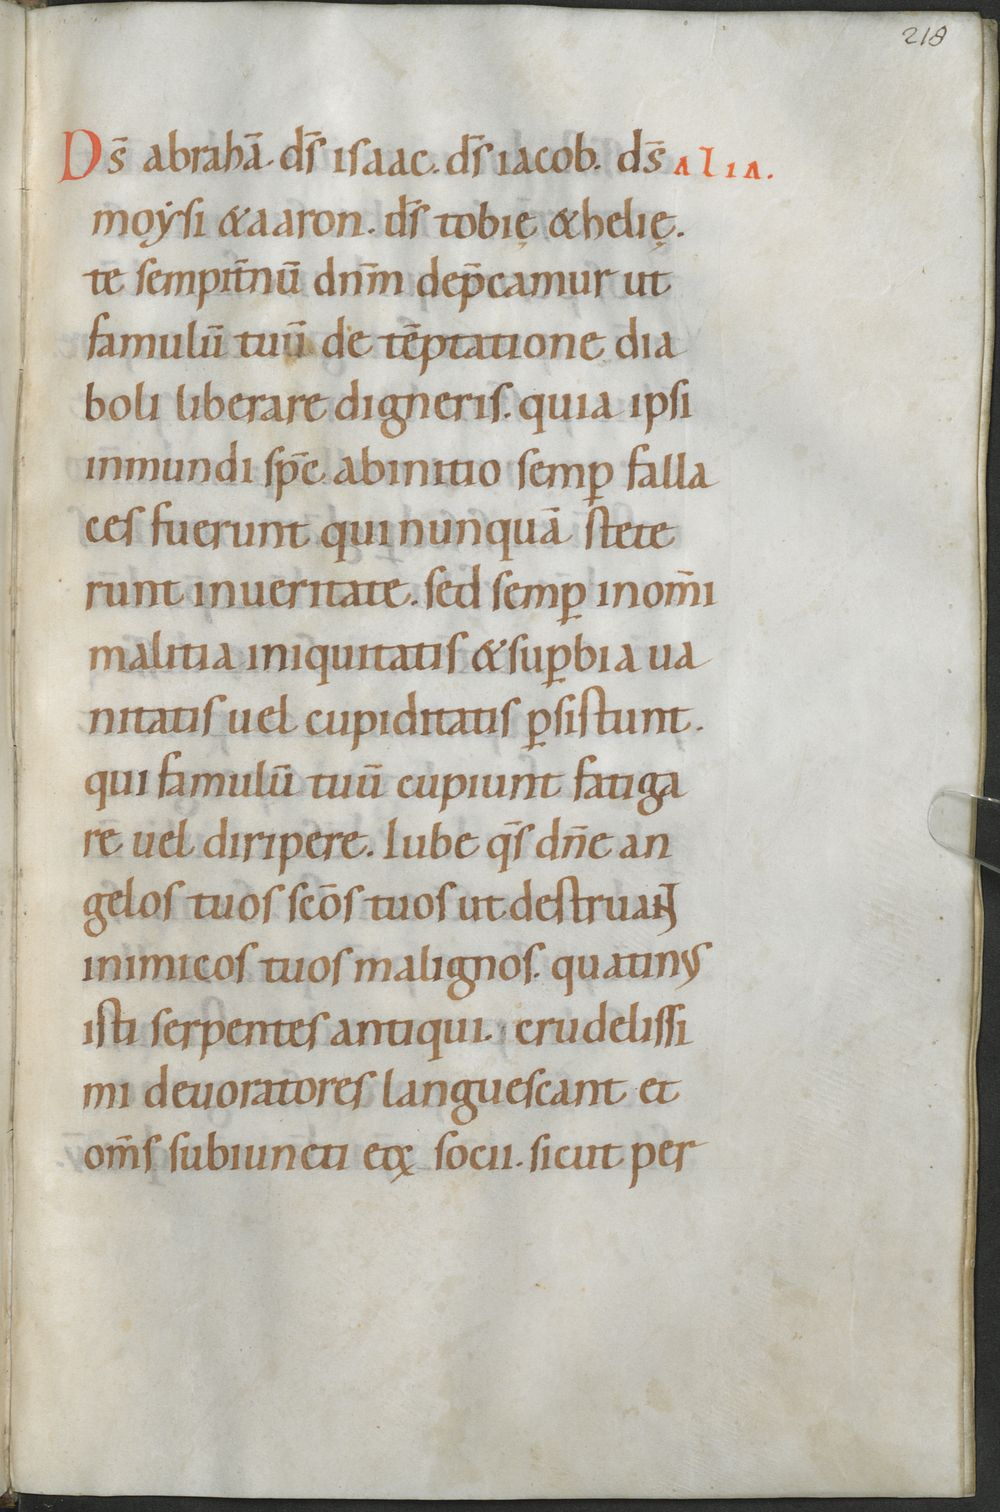 218
Ds̄ abrahā. ds̄ isaac. ds̄ iacob. ds̄ alia.
moẏsi &aaron. ds̄ tobię &helię.
te sempit̄nū dnm̄ dep̄camur ut
famulū tuū de tēptatione dia
boli liberare digneris. quia ipsi
in̄mundi sp̄c abinitio semꝑ falla
ces fuerunt qui nunquā stete
runt inueritate. sed semꝑ inom̄i
malitia iniquitatis &suꝑbia ua
nitatis uel cupiditatis ꝑsistunt.
qui famulū tuū cupiunt fatiga
re uel diripere. Iube qs̄ dn̄e an
gelos tuos scōs tuos ut destruant
inimicos tuos malignos. quatinus
isti serpentes antiqui. crudelissi
mi deuoratores languescant et
om̄s subiuncti eoꝝ socii. sicut per